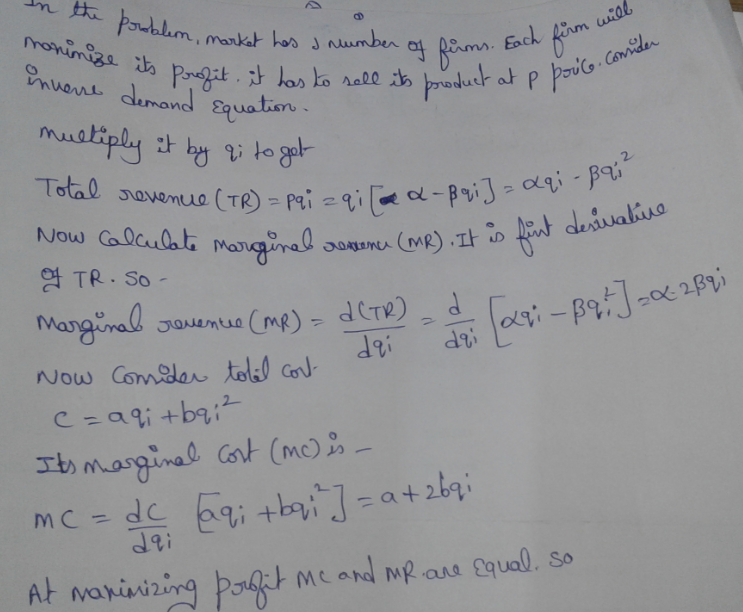 In the problem, market has J number of firms. Each firm will
maximize its profit. it has to sell its product at P price. consider
inverse demand Equation.
multiply it by qi to get
Total revenue (TR) = pqi = qi [α - βqi] = αqi - βqi²
Now calculate marginal revenue (MR). It is first derivative
of TR. so -
marginal revenue (MR) = d(TR)/dqi = d/dqi [αqi - βqi²] = α-2βqi
Now Consider total cost.
C = aqi + bqi²
Its marginal cost (mc) is -
MC = dC/dqi [aqi + bqi²] = a + 2bqi
At maximizing profit MC and MR are equal. so